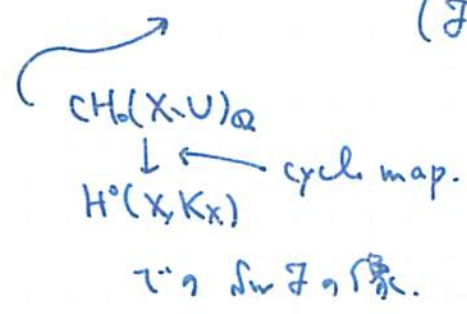 (F
CH₀(X∖U)_ℚ
↓ ← cycle map.
H⁰(X, K_X)
での Sw F の像.